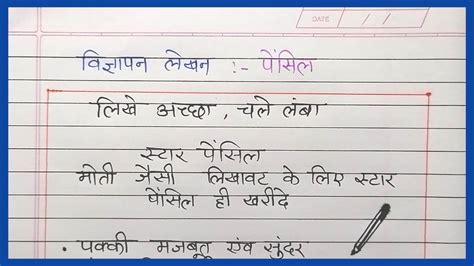 DATE
विज्ञापन लेखन :- पेंसिल
लिखे अच्छा , चले लंबा
स्टार पेंसिल
मोती जैसी लिखावट के लिए स्टार
पेंसिल ही खरीदे
• पक्की मजबूत एंव सुंदर